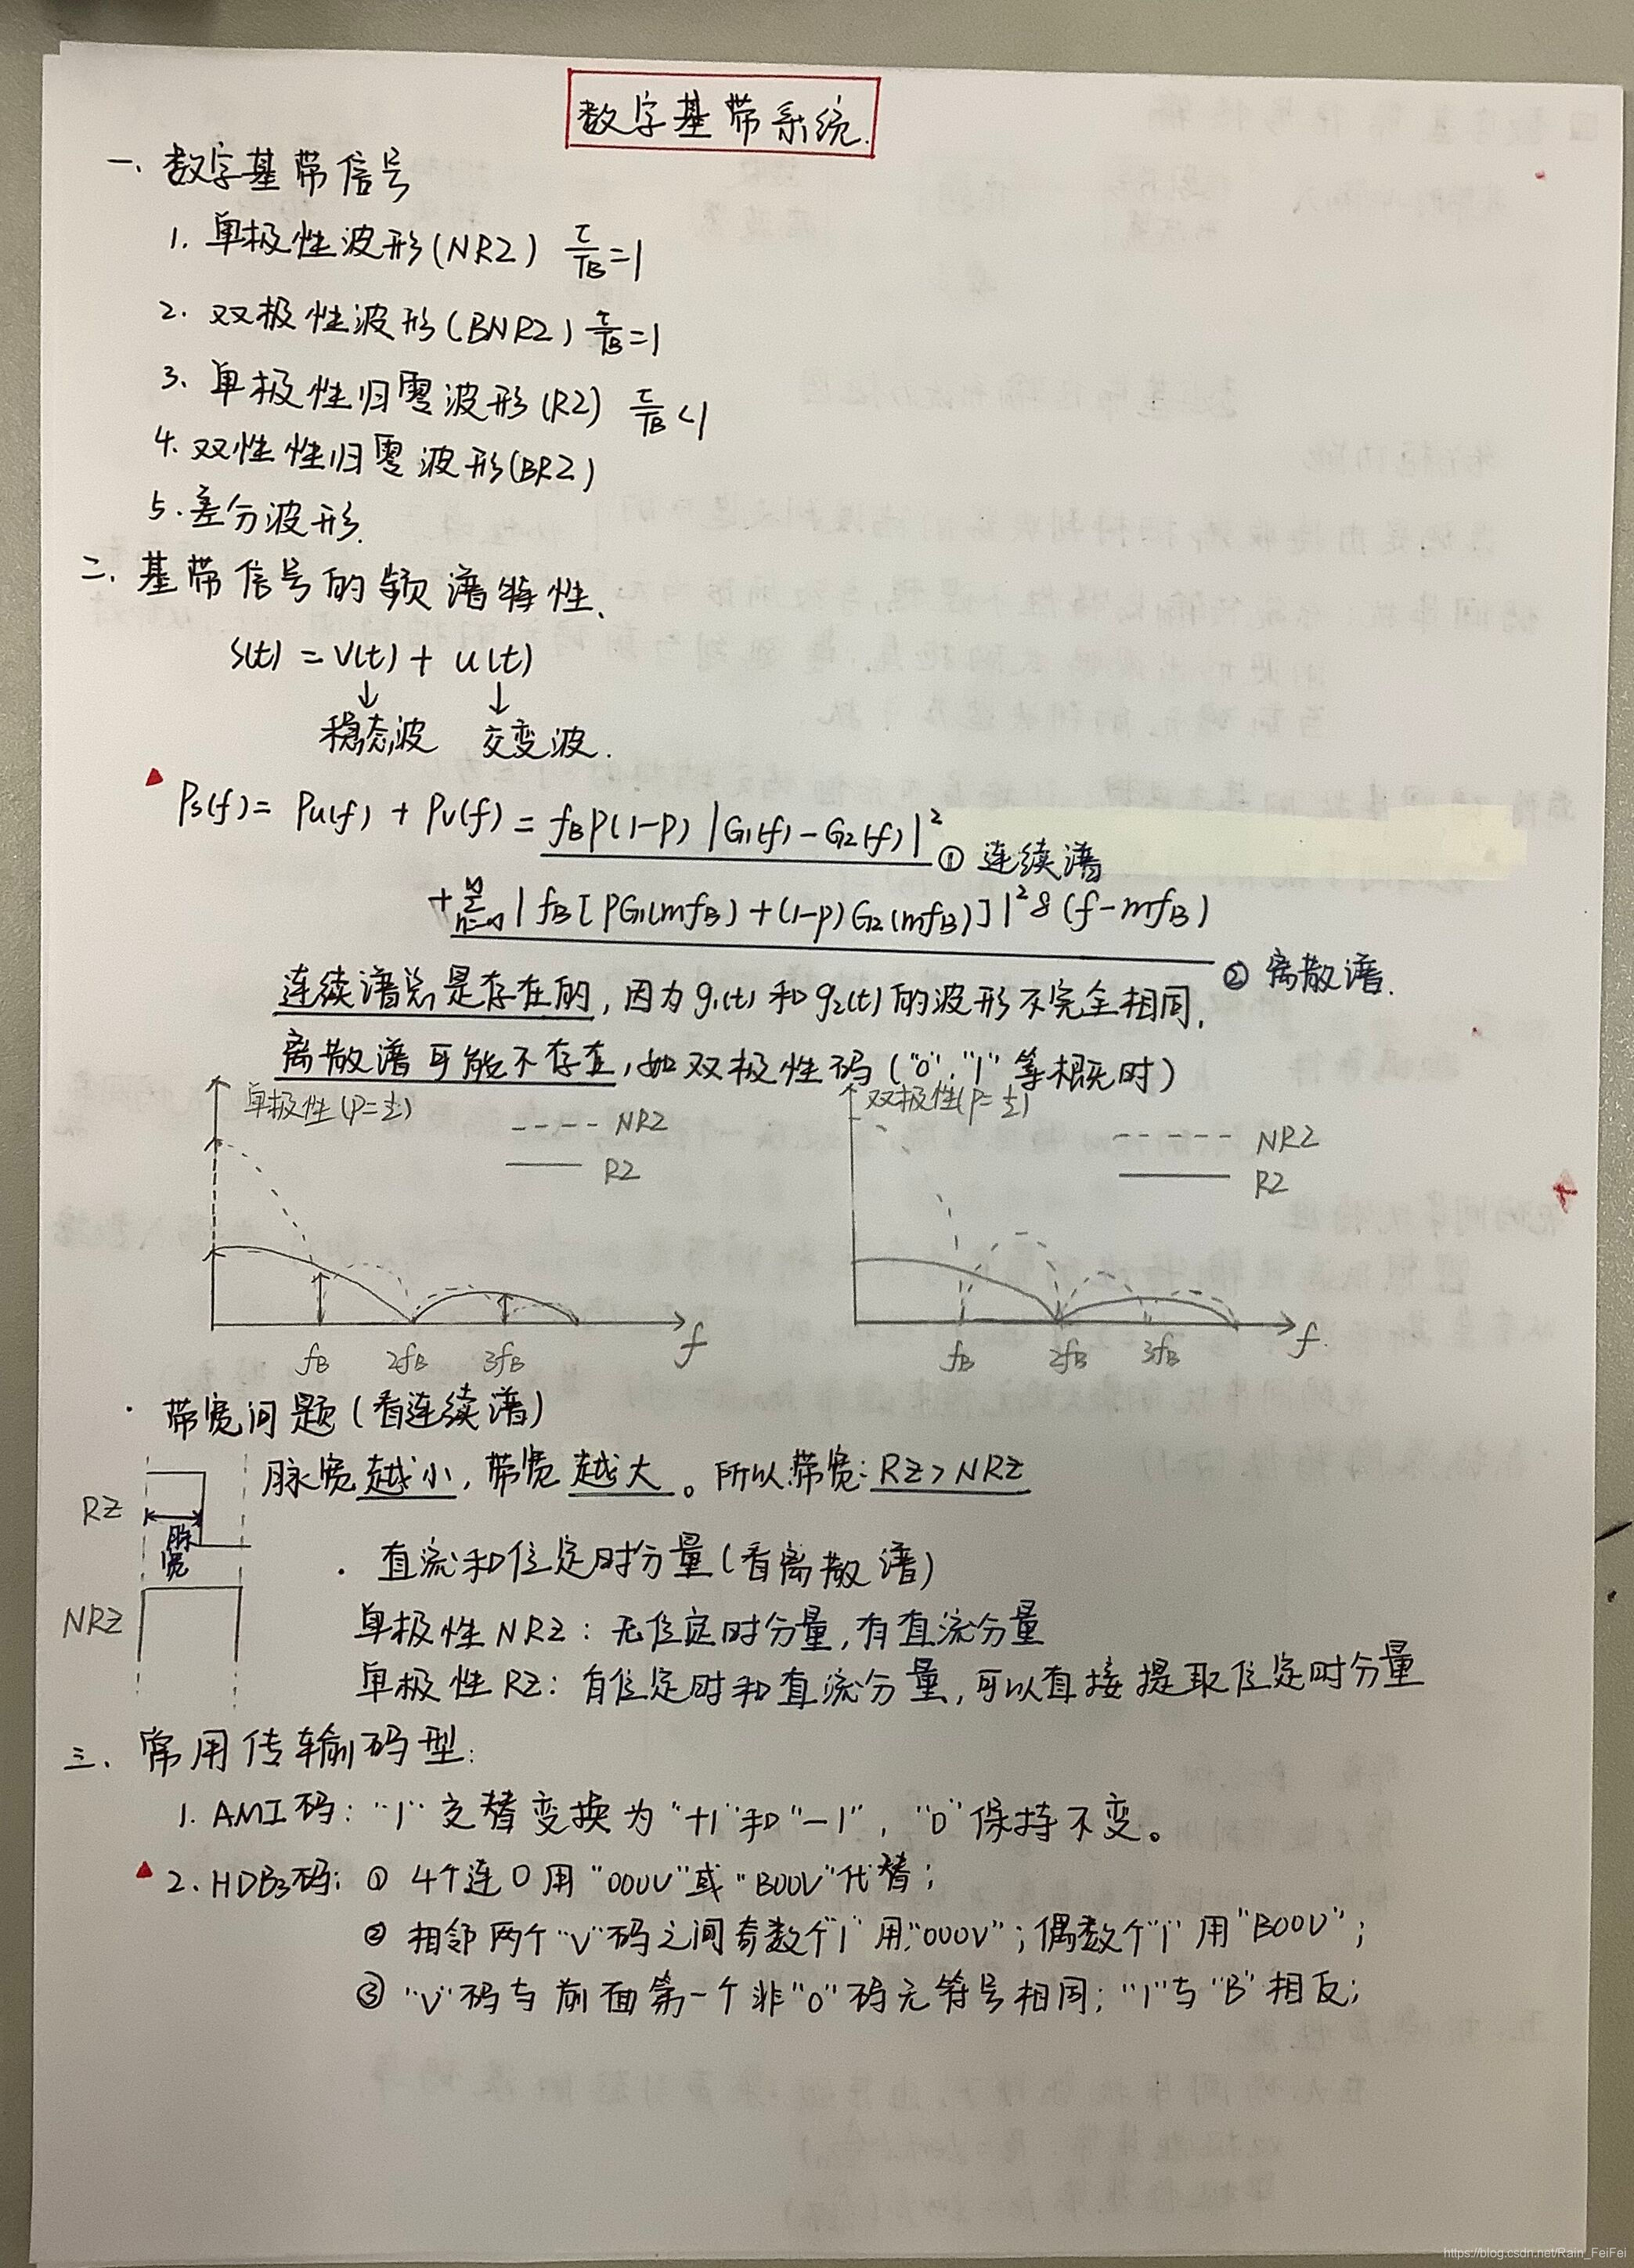 数字基带系统.
一、数字基带信号
1. 单极性波形(NRZ) τ/TB=1
2. 双极性波形(BNRZ) τ/TB=1
3. 单极性归零波形(RZ) τ/TB<1
4. 双性性归零波形(BRZ)
5. 差分波形.
二、基带信号的频谱特性、
S(t) = V(t) + u(t)
↓ ↓
稳态波 交变波.
Ps(f) = Pu(f) + Pv(f) = fB P(1-P) |G1(f) - G2(f)|² ① 连续谱
+ Σ | fB [ PG1(mfB) + (1-P) G2(mfB)] |² δ (f-mfB)
② 离散谱.
连续谱总是存在的, 因为 g1(t) 和 g2(t) 的波形不完全相同,
离散谱可能不存在, 如双极性码 ("0"、"1" 等概时)
单极性 (P=½) 双极性(P=½)
NRZ NRZ
RZ RZ
fB 2fB 3fB f fB 2fB 3fB f.
· 带宽问题 (看连续谱)
脉宽越小, 带宽越大。所以带宽: RZ > NRZ
RZ
脉宽
· 直流和位定时分量 (看离散谱)
NRZ
单极性 NRZ: 无位定时分量, 有直流分量
单极性 RZ: 有位定时和直流分量, 可以直接提取位定时分量
三、常用传输码型:
1. AMI码: "1" 交替变换为 "+1" 和 "-1", "0" 保持不变。
2. HDB3码: ① 4个连0用 "000V" 或 "B00V" 代替;
② 相邻两个 "V" 码之间奇数个 "1" 用 "000V"; 偶数个 "1" 用 "B00V";
③ "V" 码与前面第一个非 "0" 码元符号相同; "1" 与 "B" 相反;
https://blog.csdn.net/Rain_FeiFei